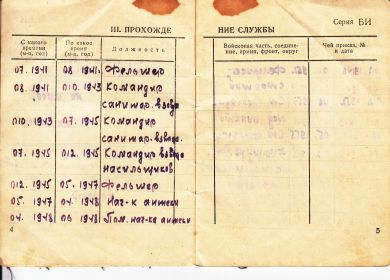 Серия БИ
III. ПРОХОЖДЕ НИЕ СЛУЖБЫ
С какого времени (м-ц, год)
По какое время (м-ц, год)
Должность
Войсковая часть, соединение, армия, фронт, округ
Чей приказ, № и дата
07. 1941 08. 1941 Фельдшер
08. 1941 010. 1943 Командир
санитар. взвода
010. 1943 07. 1945 Командир
санитар. взвода
07. 1945 012. 1945 Командир взвода
носильщиков
012. 1945 05. 1947 Фельшер
05. 1947 04. 1948 Нач-к аптеки
04. 1948 06 1948 Пом. нач-ка аптеки
4
5